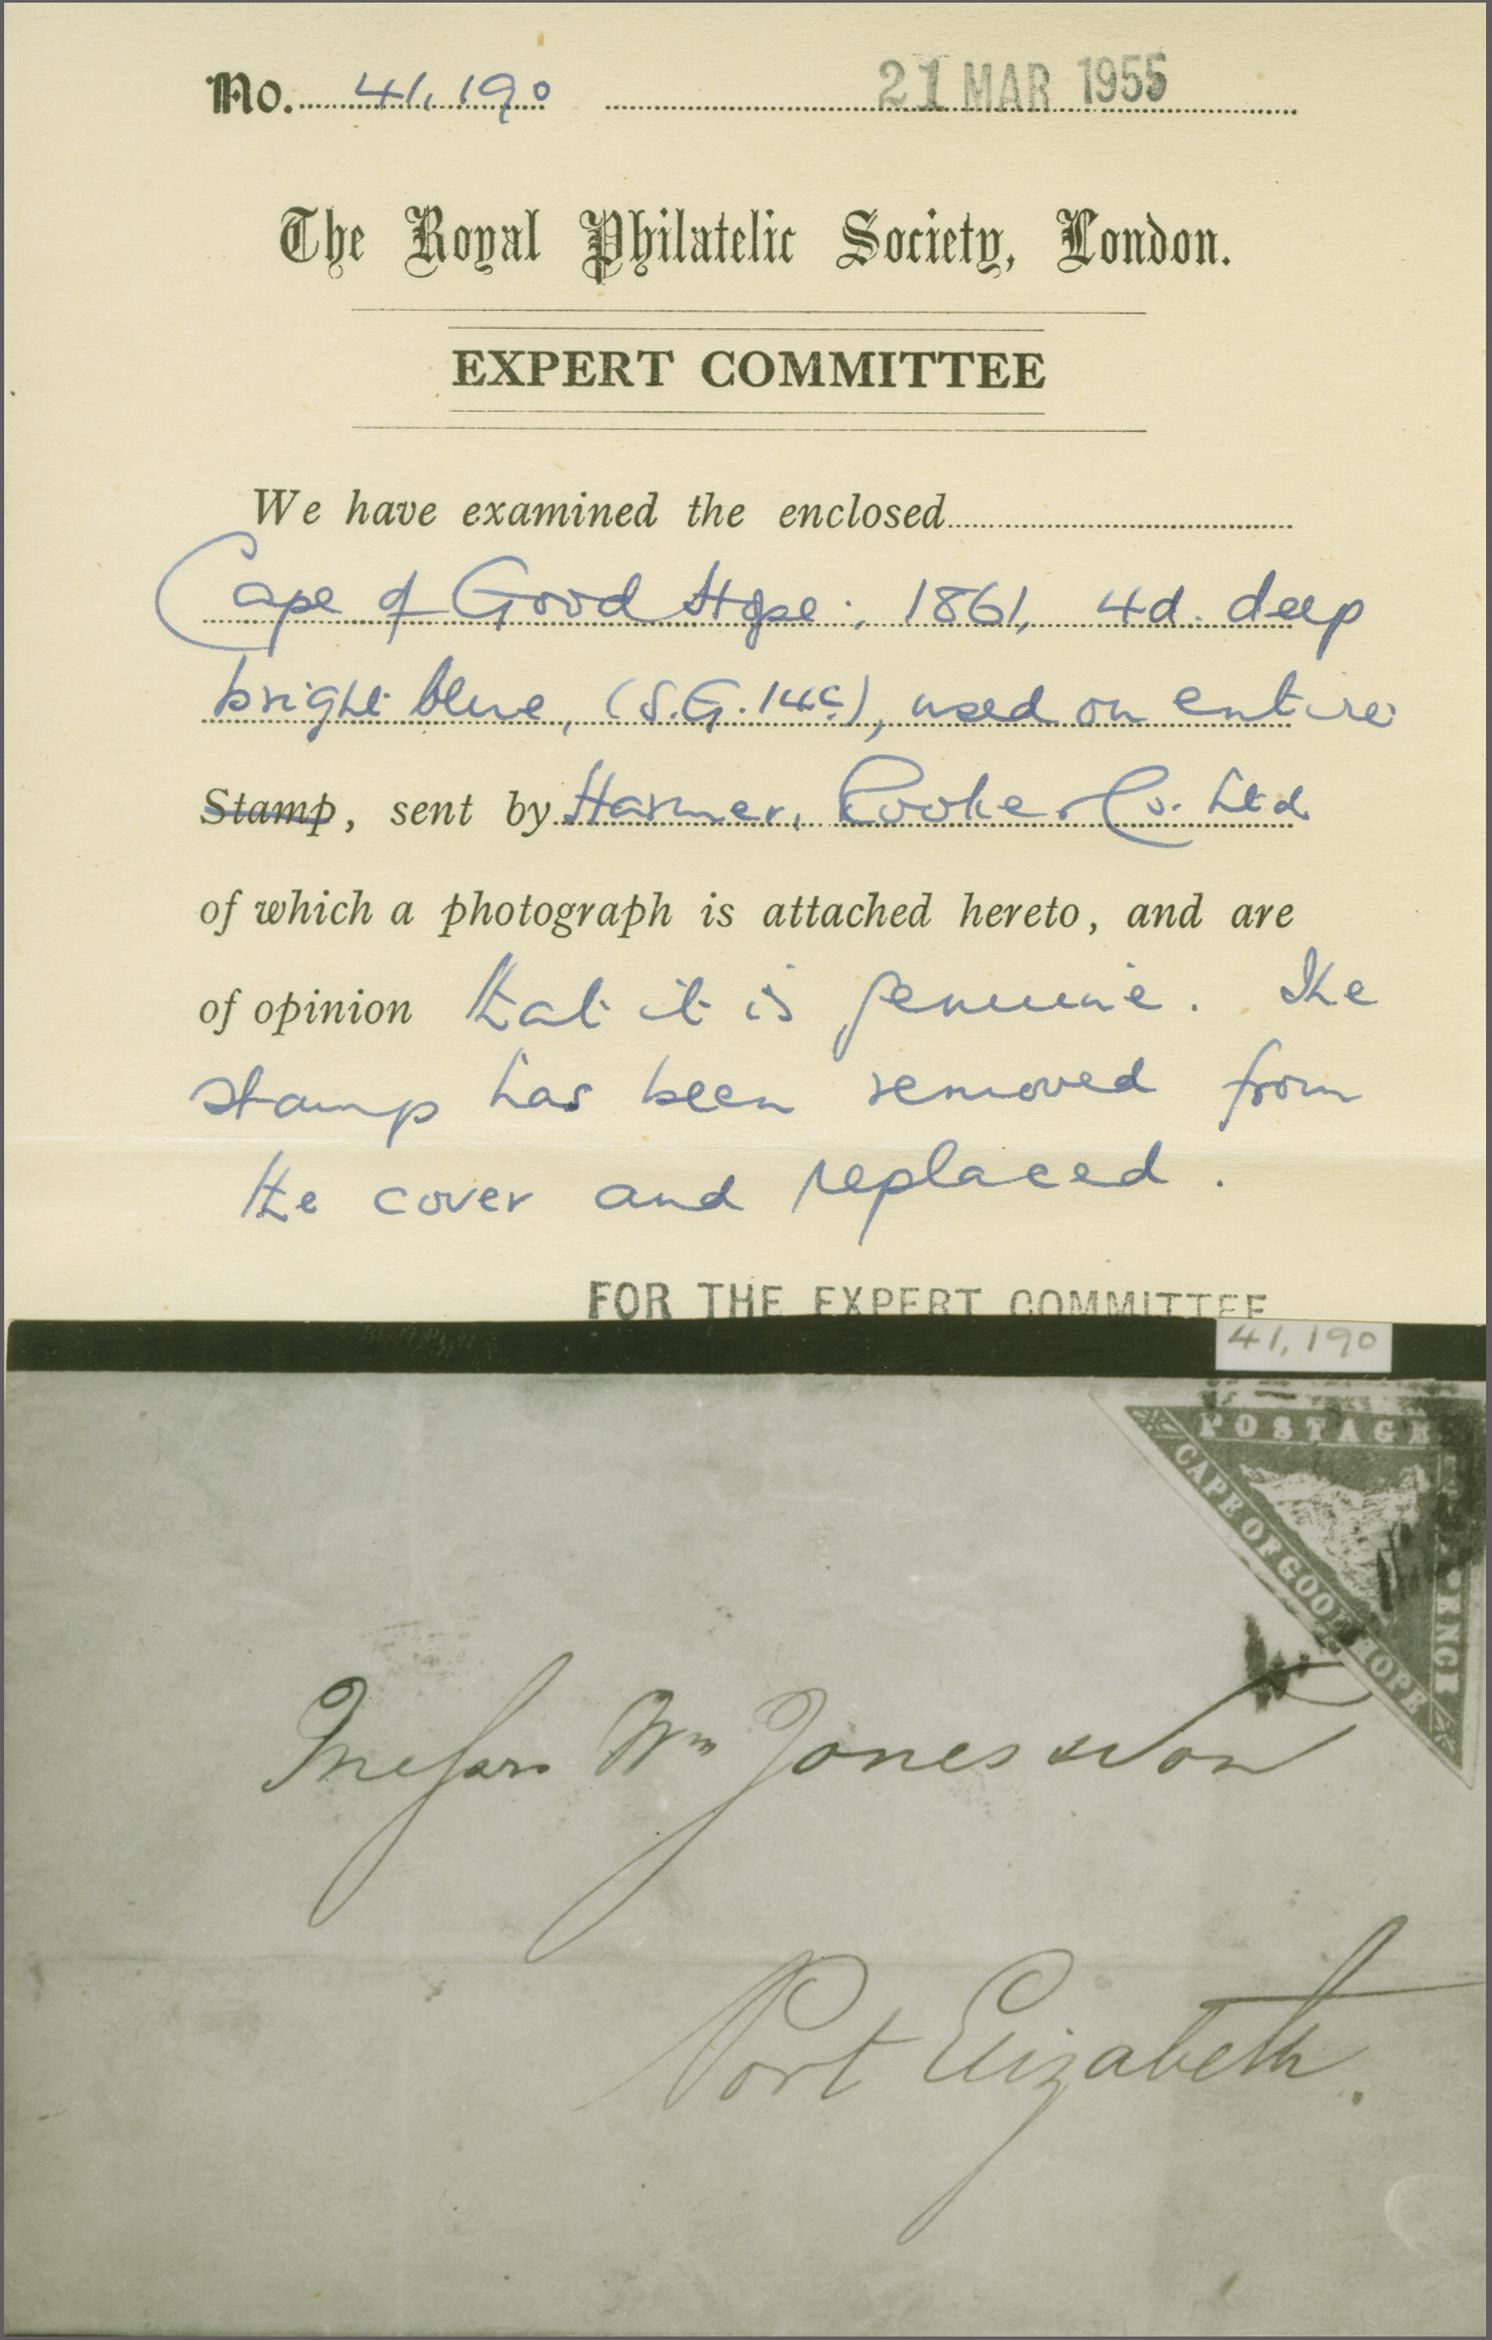 No. 41,190 21 MAR 1955
The Royal Philatelic Society, London.
EXPERT COMMITTEE
We have examined the enclosed
Cape of Good Hope, 1861, 4d. deep
bright blue, (S.G. 14c), used on entire
Stamp, sent by Harmer, Rooke & Co. Ltd
of which a photograph is attached hereto, and are
of opinion that it is genuine. The
stamp has been removed from
the cover and replaced.
FOR THE EXPERT COMMITTEE
41,190
POSTAGE
CAPE OF GOOD HOPE
Messrs Wm Jones & Son
Port Elizabeth.